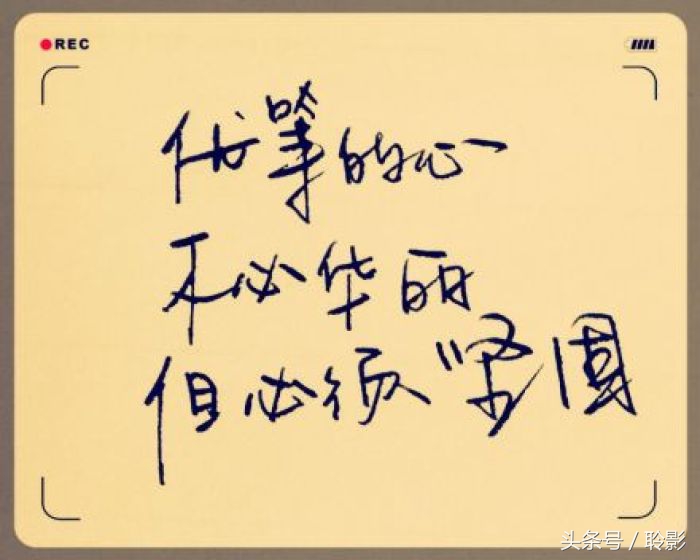 REC
优等的心
不必华丽
但必须坚固
头条号 / 聆影